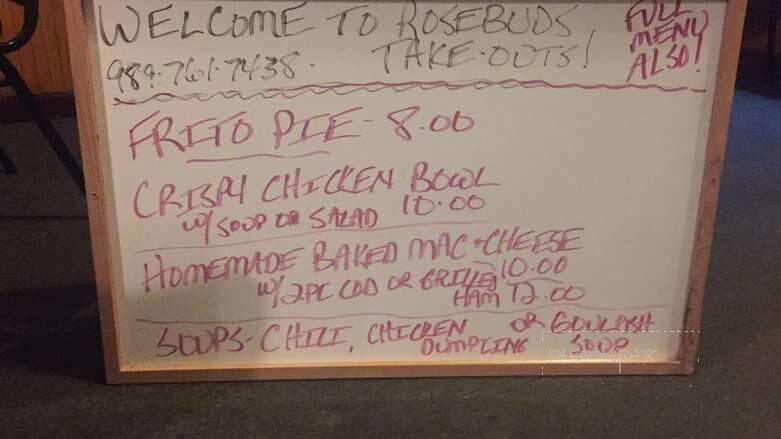 WELCOME TO ROSEBUDS
989·761·7438· TAKE-OUTS!
FULL
MENU
ALSO!
FRITO PIE - 8.00
CRISPY CHICKEN BOWL
W/ SOUP OR SALAD 10.00
HOMEMADE BAKED MAC + CHEESE
10.00
W/ 2PC COD OR GRILLED
HAM 12.00
SOUPS - CHILI, CHICKEN DUMPLING OR GOULASH SOUP